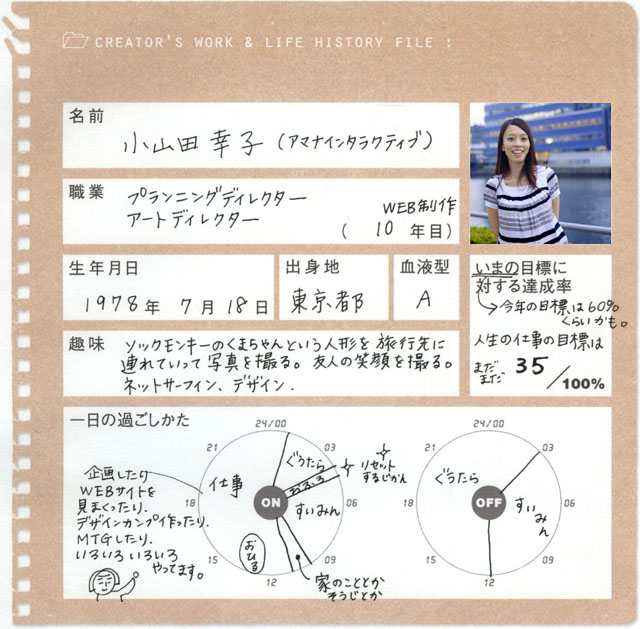 CREATOR'S WORK & LIFE HISTORY FILE :
名前
小山田 幸子 (アマナインタラクティブ)
職業
プランニングディレクター
アートディレクター
WEB制作
( 10 年目)
生年月日
1978年 7月18日
出身地
東京都
血液型
A
いまの目標に
対する達成率
→今年の目標は60%
くらいかも。
人生の仕事の目標は
まだ
まだ 35 /100%
趣味
ソックモンキーのくまちゃんという人形を旅行先に
連れていって写真を撮る。友人の笑顔を撮る。
ネットサーフィン、デザイン.
一日の過ごしかた
24/00
03
06
09
12
15
18
21
ON
仕事
ぐうたら
おふろ
リセット
するじかん
すいみん
おひる
家のこととか
そうじとか
企画したり
WEBサイトを
見まくったり、
デザインカンプ作ったり、
MTGしたり、
いろいろいろいろ
やってます。
24/00
03
06
09
12
15
18
21
OFF
ぐうたら
すいみん